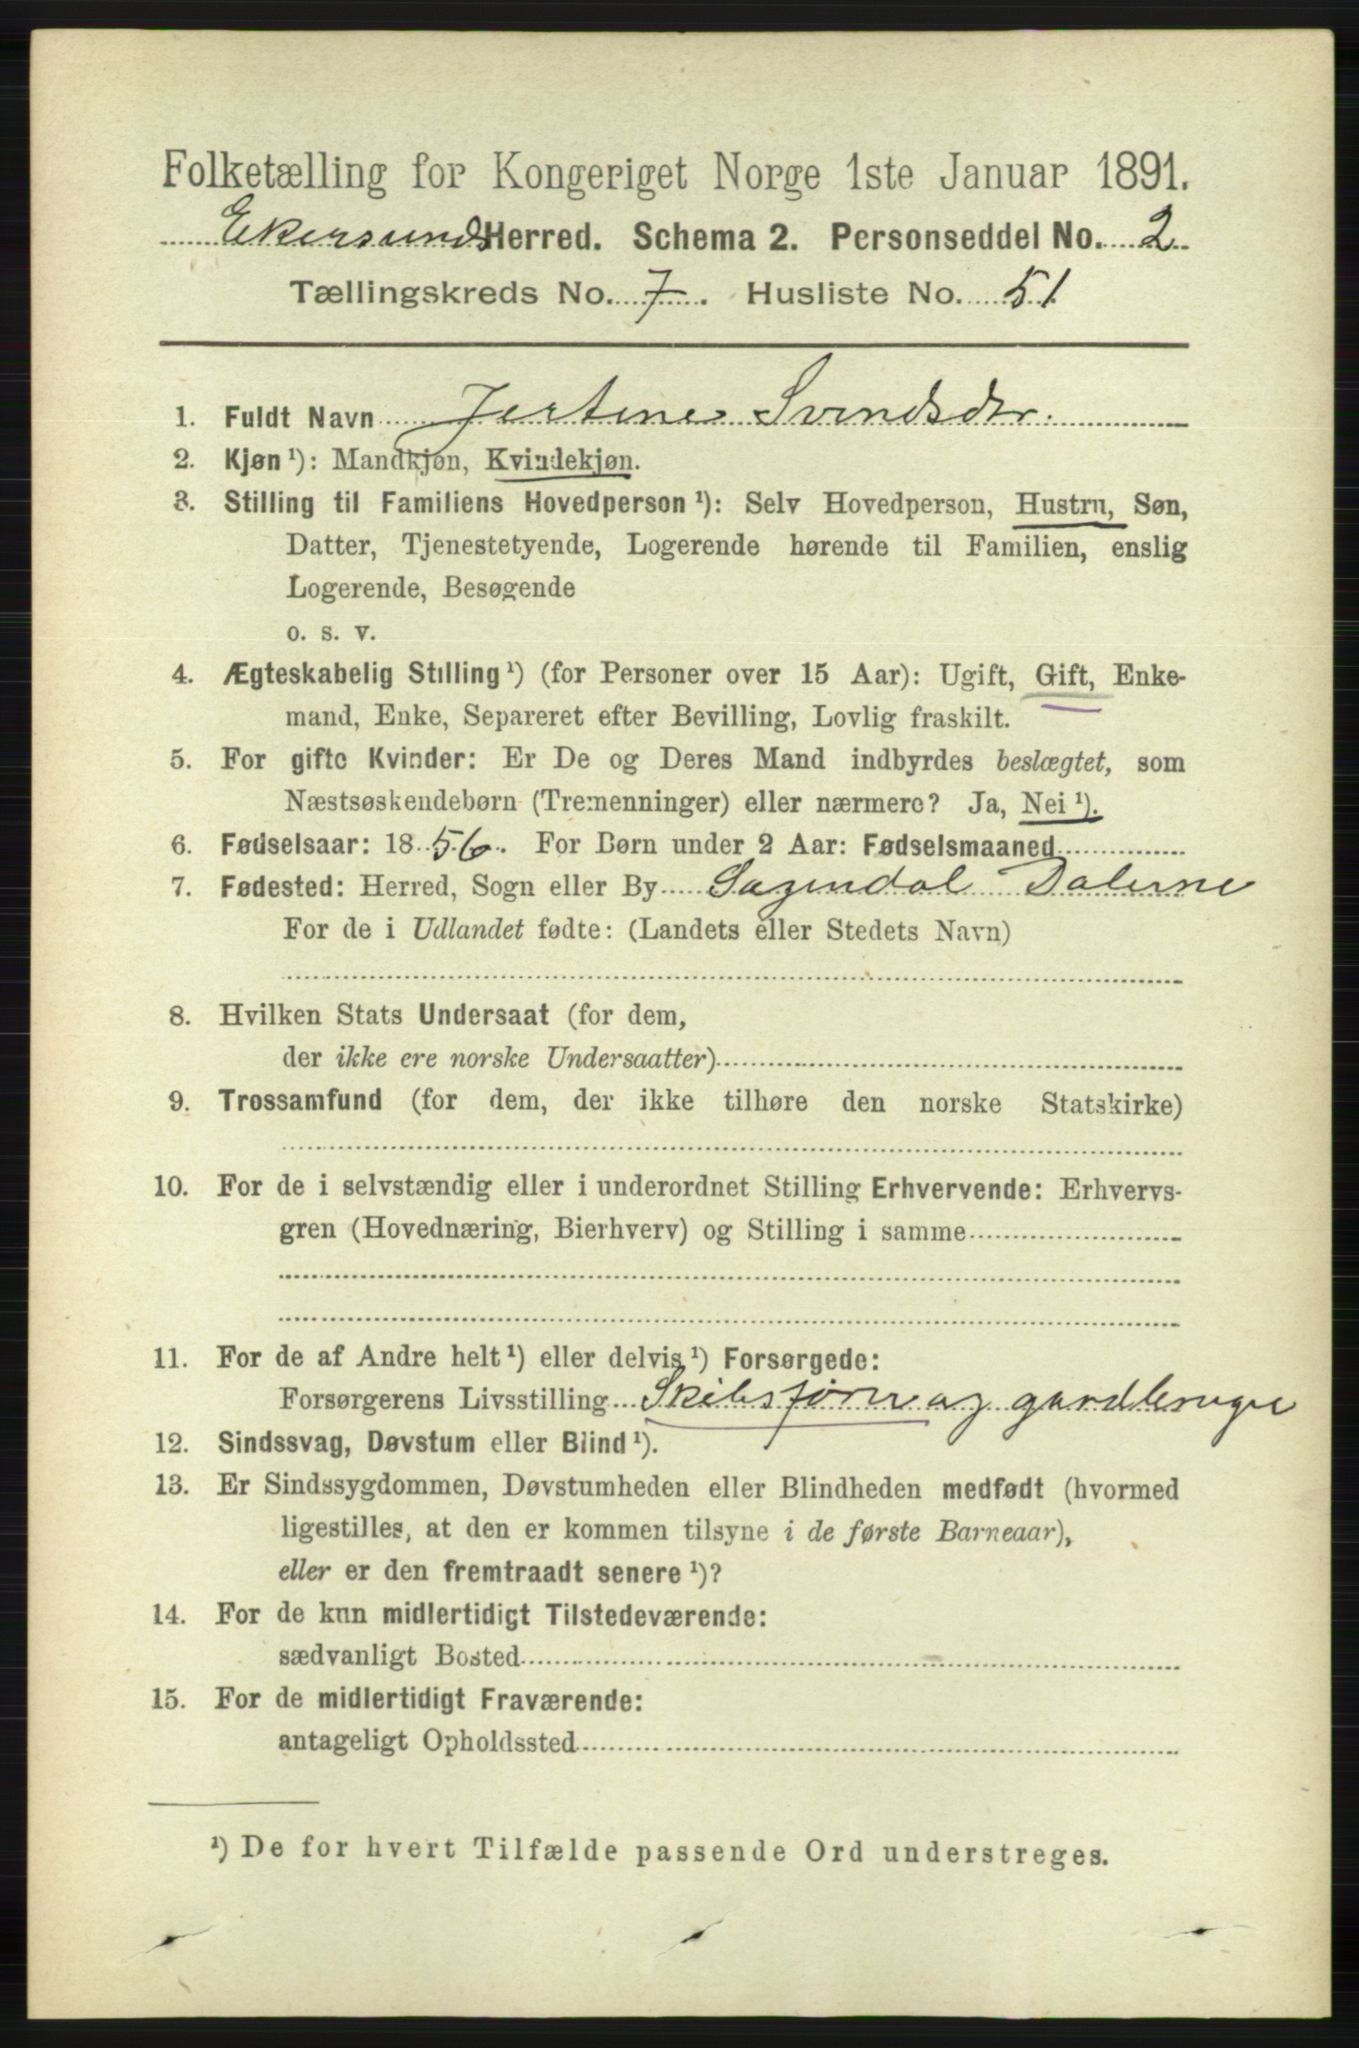 Folketælling for Kongeriget Norge 1ste Januar 1891.
Ekersunds Herred. Schema 2. Personseddel No. 2
Tællingskreds No. 7. Husliste No. 51
1. Fuldt Navn Jertine Svendsdtr.
2. Kjøn ¹): Mandkjøn, Kvindekjøn.
3. Stilling til Familiens Hovedperson ¹): Selv Hovedperson, Hustru, Søn,
Datter, Tjenestetyende, Logerende hørende til Familien, enslig
Logerende, Besøgende
o. s. v.
4. Ægteskabelig Stilling ¹) (for Personer over 15 Aar): Ugift, Gift, Enke-
mand, Enke, Separeret efter Bevilling, Lovlig fraskilt.
5. For gifte Kvinder: Er De og Deres Mand indbyrdes beslægtet, som
Næstsøskendebørn (Tremenninger) eller nærmere? Ja, Nei ¹).
6. Fødselsaar: 1856. For Børn under 2 Aar: Fødselsmaaned
7. Fødested: Herred, Sogn eller By Sogndal Dalerne
For de i Udlandet fødte: (Landets eller Stedets Navn)
8. Hvilken Stats Undersaat (for dem,
der ikke ere norske Undersaatter)
9. Trossamfund (for dem, der ikke tilhøre den norske Statskirke)
10. For de i selvstændig eller i underordnet Stilling Erhvervende: Erhvervs-
gren (Hovednæring, Bierhverv) og Stilling i samme
11. For de af Andre helt ¹) eller delvis ¹) Forsørgede:
Forsørgerens Livsstilling Skibsfører og gardbruger
12. Sindssvag, Døvstum eller Blind ¹).
13. Er Sindssygdommen, Døvstumheden eller Blindheden medfødt (hvormed
ligestilles, at den er kommen tilsyne i de første Barneaar),
eller er den fremtraadt senere ¹)?
14. For de kun midlertidigt Tilstedeværende:
sædvanligt Bosted
15. For de midlertidigt Fraværende:
antageligt Opholdssted
¹) De for hvert Tilfælde passende Ord understreges.